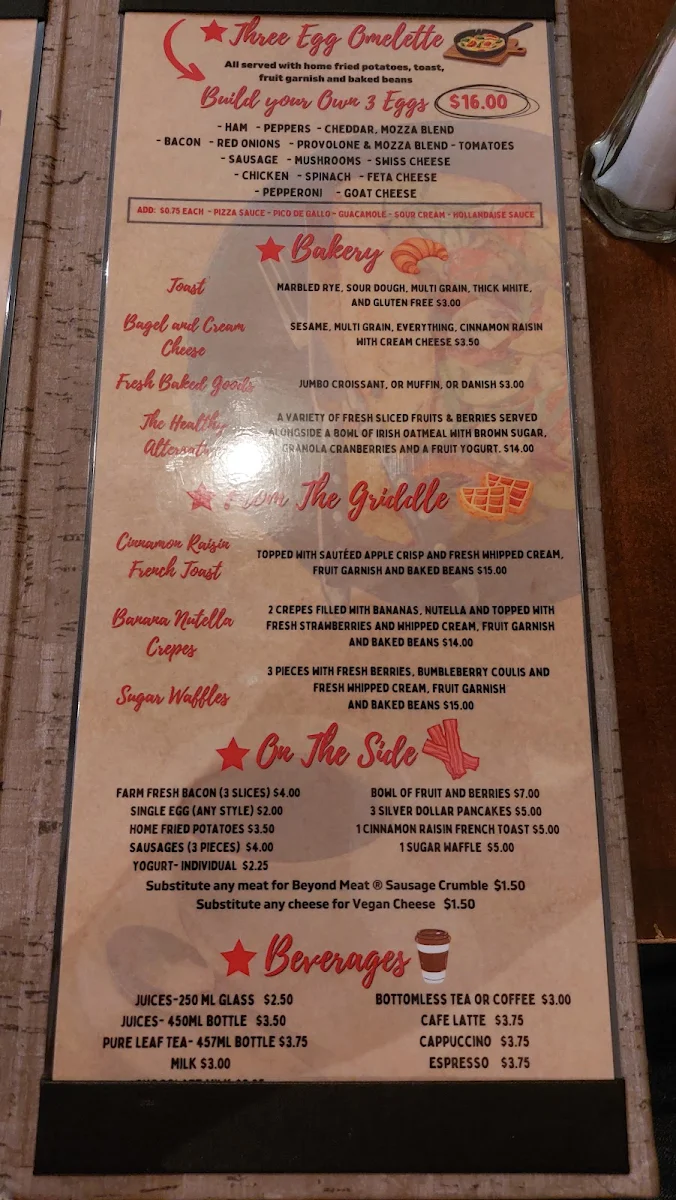 Three Egg Omelette
All served with home fried potatoes, toast,
fruit garnish and baked beans
Build your Own 3 Eggs $16.00
- HAM - PEPPERS - CHEDDAR, MOZZA BLEND
- BACON - RED ONIONS - PROVOLONE & MOZZA BLEND - TOMATOES
- SAUSAGE - MUSHROOMS - SWISS CHEESE
- CHICKEN - SPINACH - FETA CHEESE
- PEPPERONI - GOAT CHEESE
ADD: $0.75 EACH - PIZZA SAUCE - PICO DE GALLO - GUACAMOLE - SOUR CREAM - HOLLANDAISE SAUCE
Bakery
Toast
MARBLED RYE, SOUR DOUGH, MULTI GRAIN, THICK WHITE,
AND GLUTEN FREE $3.00
Bagel and Cream
Cheese
SESAME, MULTI GRAIN, EVERYTHING, CINNAMON RAISIN
WITH CREAM CHEESE $3.50
Fresh Baked Goods
JUMBO CROISSANT, OR MUFFIN, OR DANISH $3.00
The Healthy
A VARIETY OF FRESH SLICED FRUITS & BERRIES SERVED
ALONGSIDE A BOWL OF IRISH OATMEAL WITH BROWN SUGAR,
GRANOLA CRANBERRIES AND A FRUIT YOGURT. $14.00
From The Griddle
Cinnamon Raisin
French Toast
TOPPED WITH SAUTÉED APPLE CRISP AND FRESH WHIPPED CREAM,
FRUIT GARNISH AND BAKED BEANS $15.00
Banana Nutella
Crepes
2 CREPES FILLED WITH BANANAS, NUTELLA AND TOPPED WITH
FRESH STRAWBERRIES AND WHIPPED CREAM, FRUIT GARNISH
AND BAKED BEANS $14.00
Sugar Waffles
3 PIECES WITH FRESH BERRIES, BUMBLEBERRY COULIS AND
FRESH WHIPPED CREAM, FRUIT GARNISH
AND BAKED BEANS $15.00
On The Side
FARM FRESH BACON (3 SLICES) $4.00
SINGLE EGG (ANY STYLE) $2.00
HOME FRIED POTATOES $3.50
SAUSAGES (3 PIECES) $4.00
YOGURT- INDIVIDUAL $2.25
BOWL OF FRUIT AND BERRIES $7.00
3 SILVER DOLLAR PANCAKES $5.00
1 CINNAMON RAISIN FRENCH TOAST $5.00
1 SUGAR WAFFLE $5.00
Substitute any meat for Beyond Meat ® Sausage Crumble $1.50
Substitute any cheese for Vegan Cheese $1.50
Beverages
JUICES-250 ML GLASS $2.50
JUICES- 450ML BOTTLE $3.50
PURE LEAF TEA- 457ML BOTTLE $3.75
MILK $3.00
BOTTOMLESS TEA OR COFFEE $3.00
CAFE LATTE $3.75
CAPPUCCINO $3.75
ESPRESSO $3.75